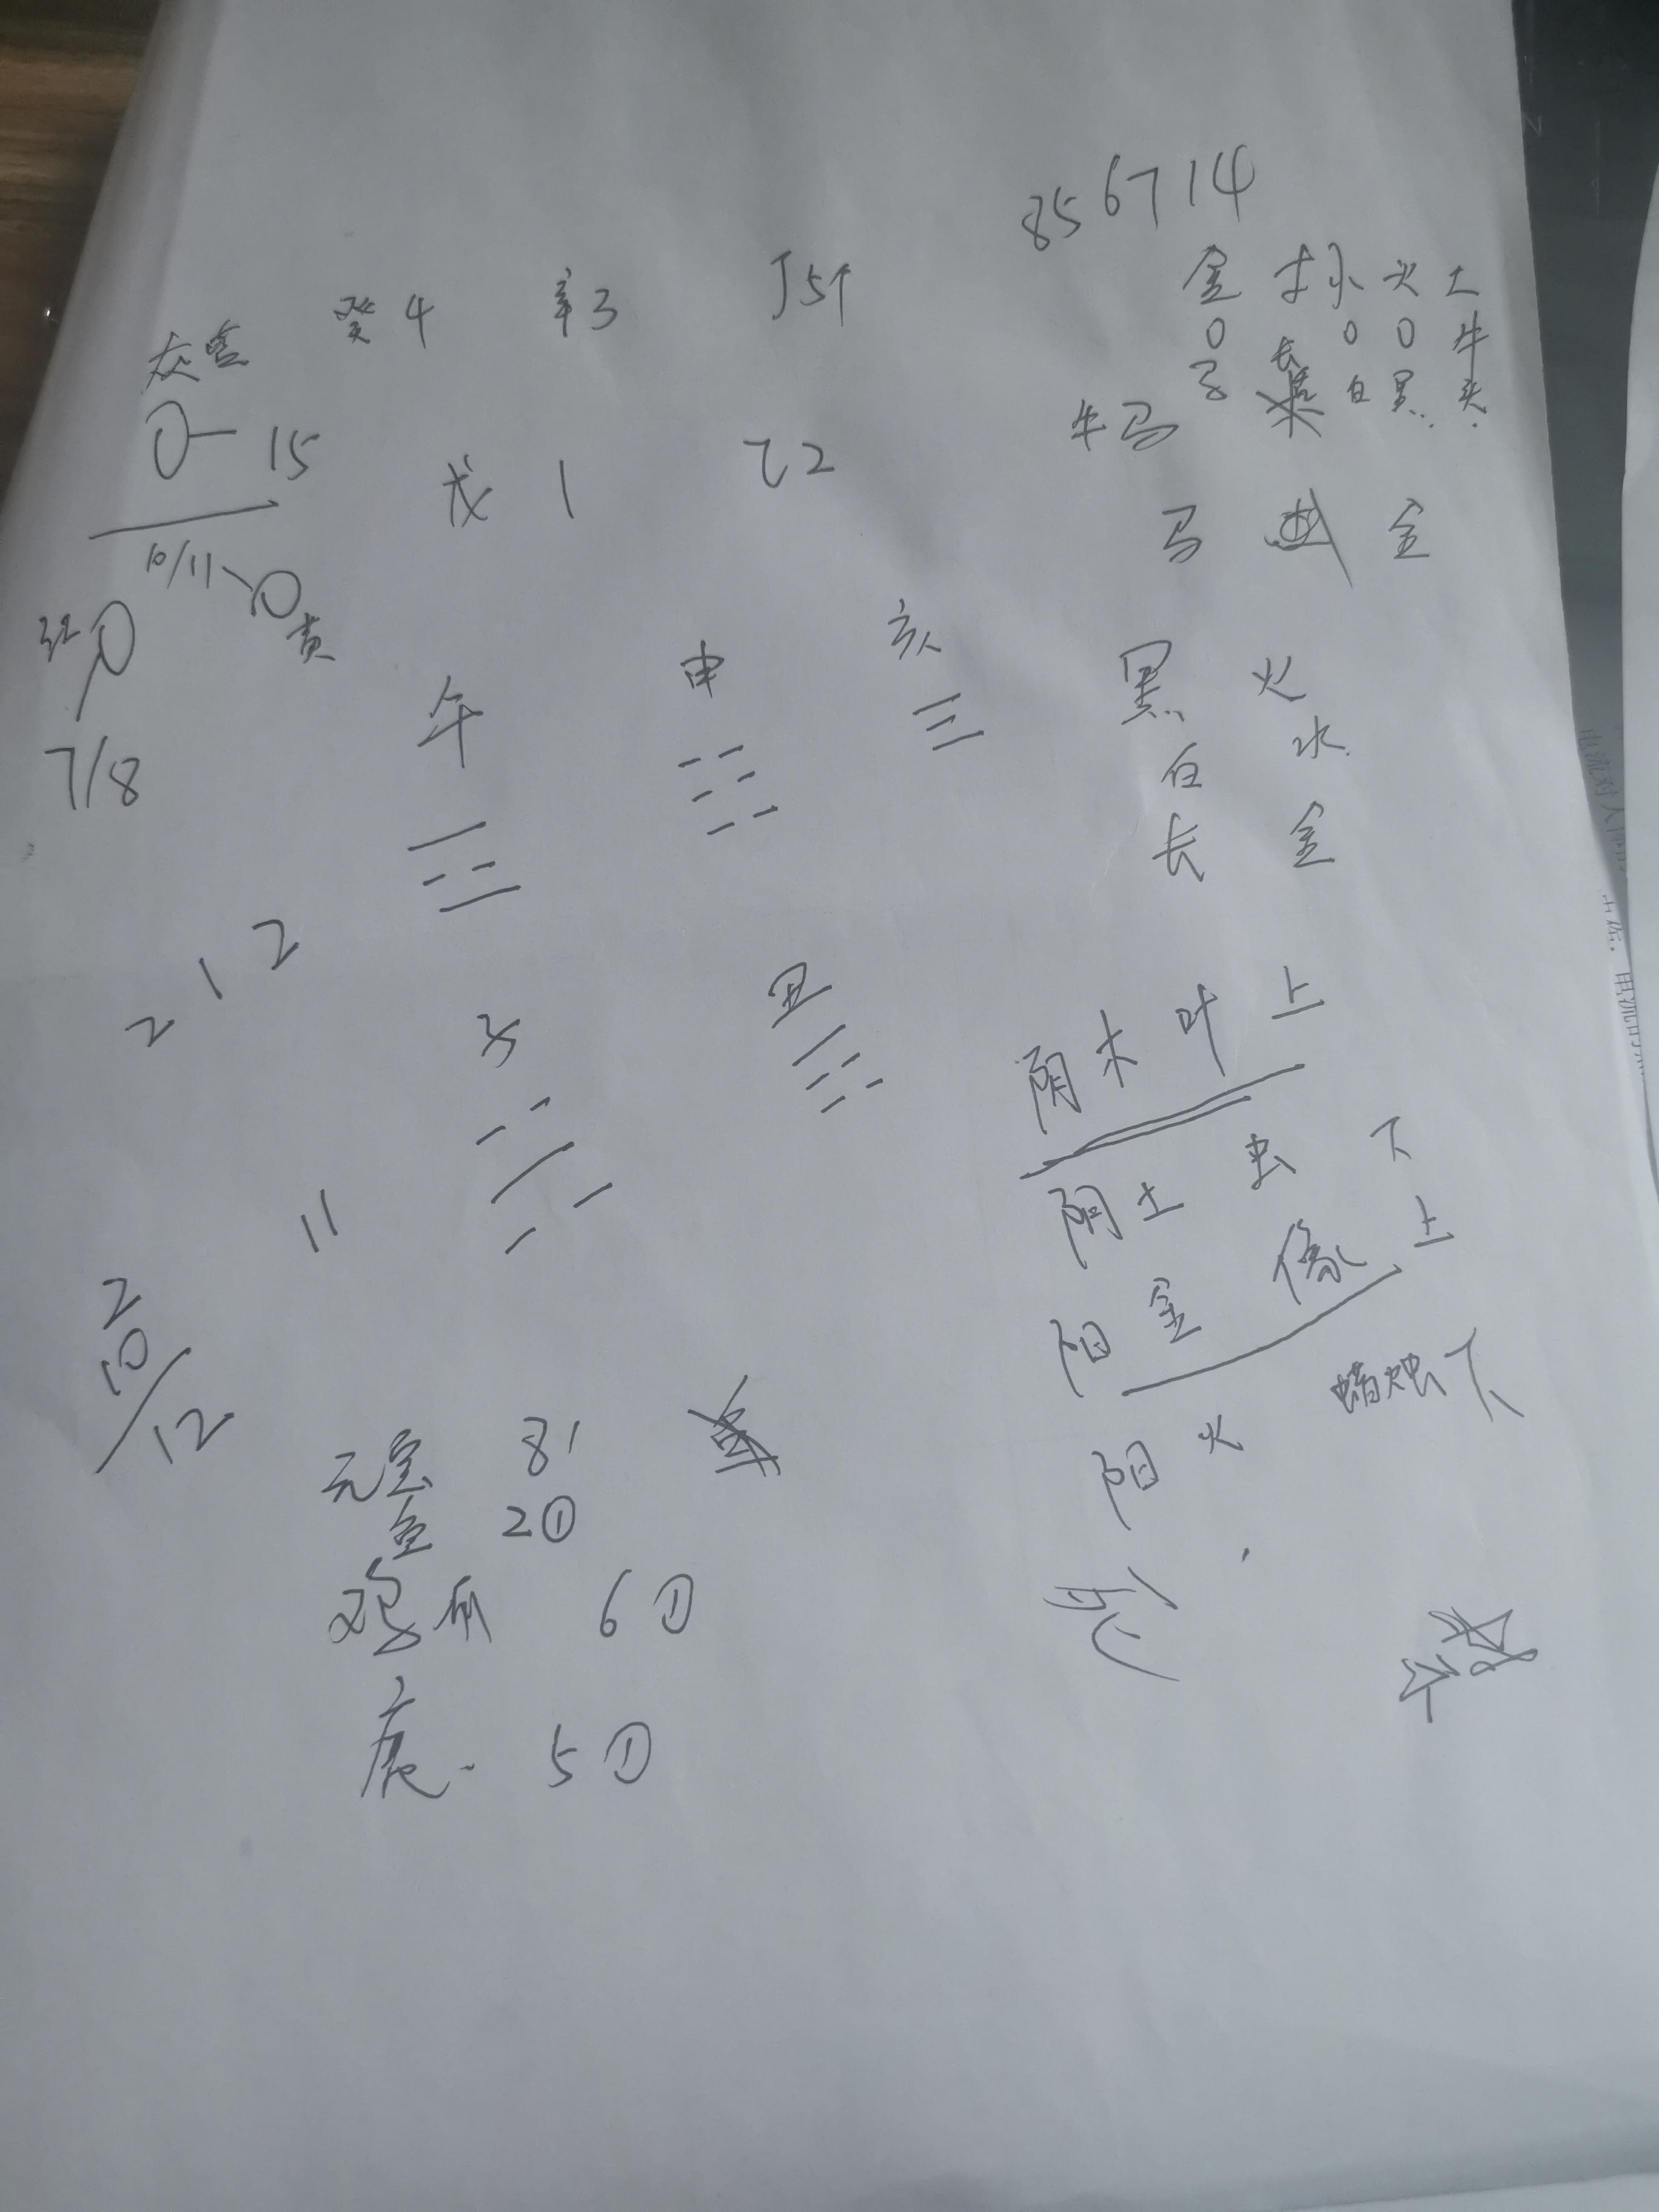 856714
癸4 辛3 丁5个
金 木 水 火 土
0 长 0 0 牛
马 白 黑 头
15 戊 1 乙2
牛马
马 金
10/11
红 黄
7/8
午 申 亥
黑 火
白 水
长 金
2 1 2
子 丑
阴木叶上
阴土 虫 下
阳金 像 上
阳火 蜡烛下
11
2
10/12
元宝 81
鱼 2①
鸡爪 6①
鹿 5①